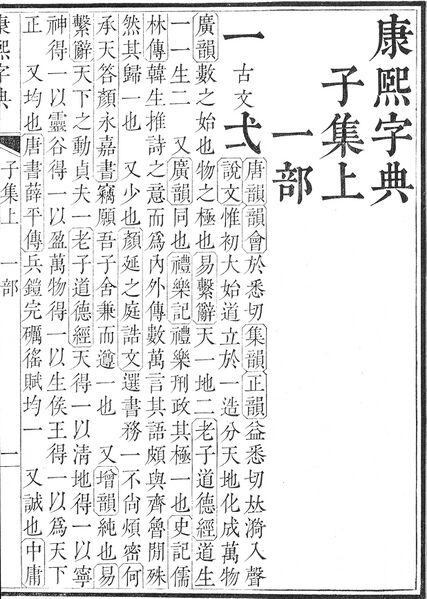 康熙字典
子集上
一部
一 古文 弌
唐韻韻會於悉切集韻正韻益悉切𠀤漪入聲
說文惟初大始道立於一造分天地化成萬物
廣韻數之始也物之極也易繫辭天一地二老子道德經道生
一一生二　又廣韻同也禮樂記禮樂刑政其極一也史記儒
林傳韓生推詩之意而爲內外傳數萬言其語頗與齊魯閒殊
然其歸一也　又少也顏延之庭誥文選書務一不尙煩密何
承天答顏永嘉書竊願吾子舍兼而遵一也　又增韻純也易
繫辭天下之動貞夫一老子道德經天得一以清地得一以寧
神得一以靈谷得一以盈萬物得一以生侯王得一以爲天下
正　又均也唐書薛平傳兵鎧完礪徭賦均一　又誠也中庸
康熙字典　子集上　一部　一